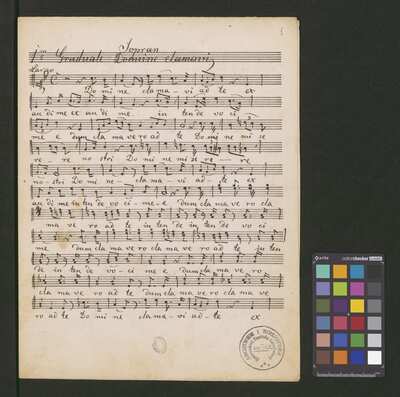 Sopran
Graduale Domine clamavi
Largo
Do mi ne cla ma - vi ad te ex
au di me ex au di me in ten de vo ci
me e dum cla ma ve ro ad te Do mi ne mi se
re - re no stri Do mi ne mi se re - re
no - stri Do mi ne - cla ma - vi ad - te ex
au di me in ten de vo ci - me - e dum cla ma ve ro cla
ma ve ro ad te in ten de in ten de vo ci
me dum cla ma ve ro cla ma ve ro ad te in ten
de in ten de vo - ci me e dum cla ma ve ro
cla ma ve ro ad te dum cla ma ve ro cla ma ve
ro ad te Do mi ne cla ma - vi ad - te ex